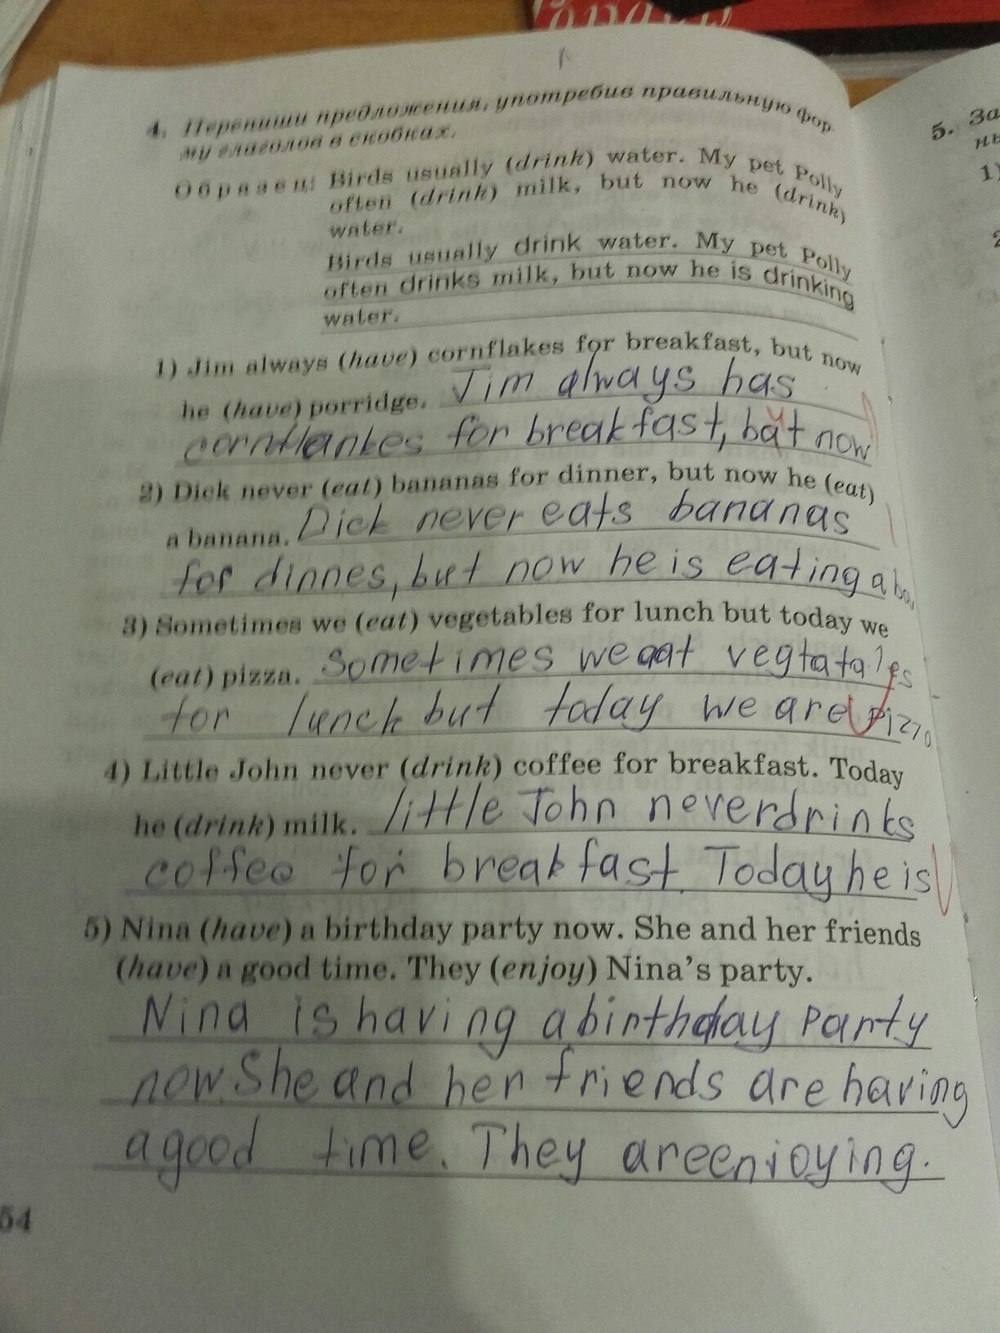 4. Перепиши предложения, употребив правильную фор-
му глаголов в скобках.
Образец: Birds usually (drink) water. My pet Polly
often (drink) milk, but now he (drink)
water.
Birds usually drink water. My pet Polly
often drinks milk, but now he is drinking
water.
1) Jim always (have) cornflakes for breakfast, but now
he (have) porridge. Jim always has
cornflankes for breakfast, but now
2) Dick never (eat) bananas for dinner, but now he (eat)
a banana. Dick never eats bananas
for dinnes, but now he is eating a ba
3) Sometimes we (eat) vegetables for lunch but today we
(eat) pizza. Sometimes we eat
for lunch but today we are pizza
4) Little John never (drink) coffee for breakfast. Today
he (drink) milk. little John never drinks
coffee for breakfast. Today he is
5) Nina (have) a birthday party now. She and her friends
(have) a good time. They (enjoy) Nina's party.
Nina is having a birthday party
now. She and her friends are having
a good time. They are enjoying.
54
5. За
1)
2